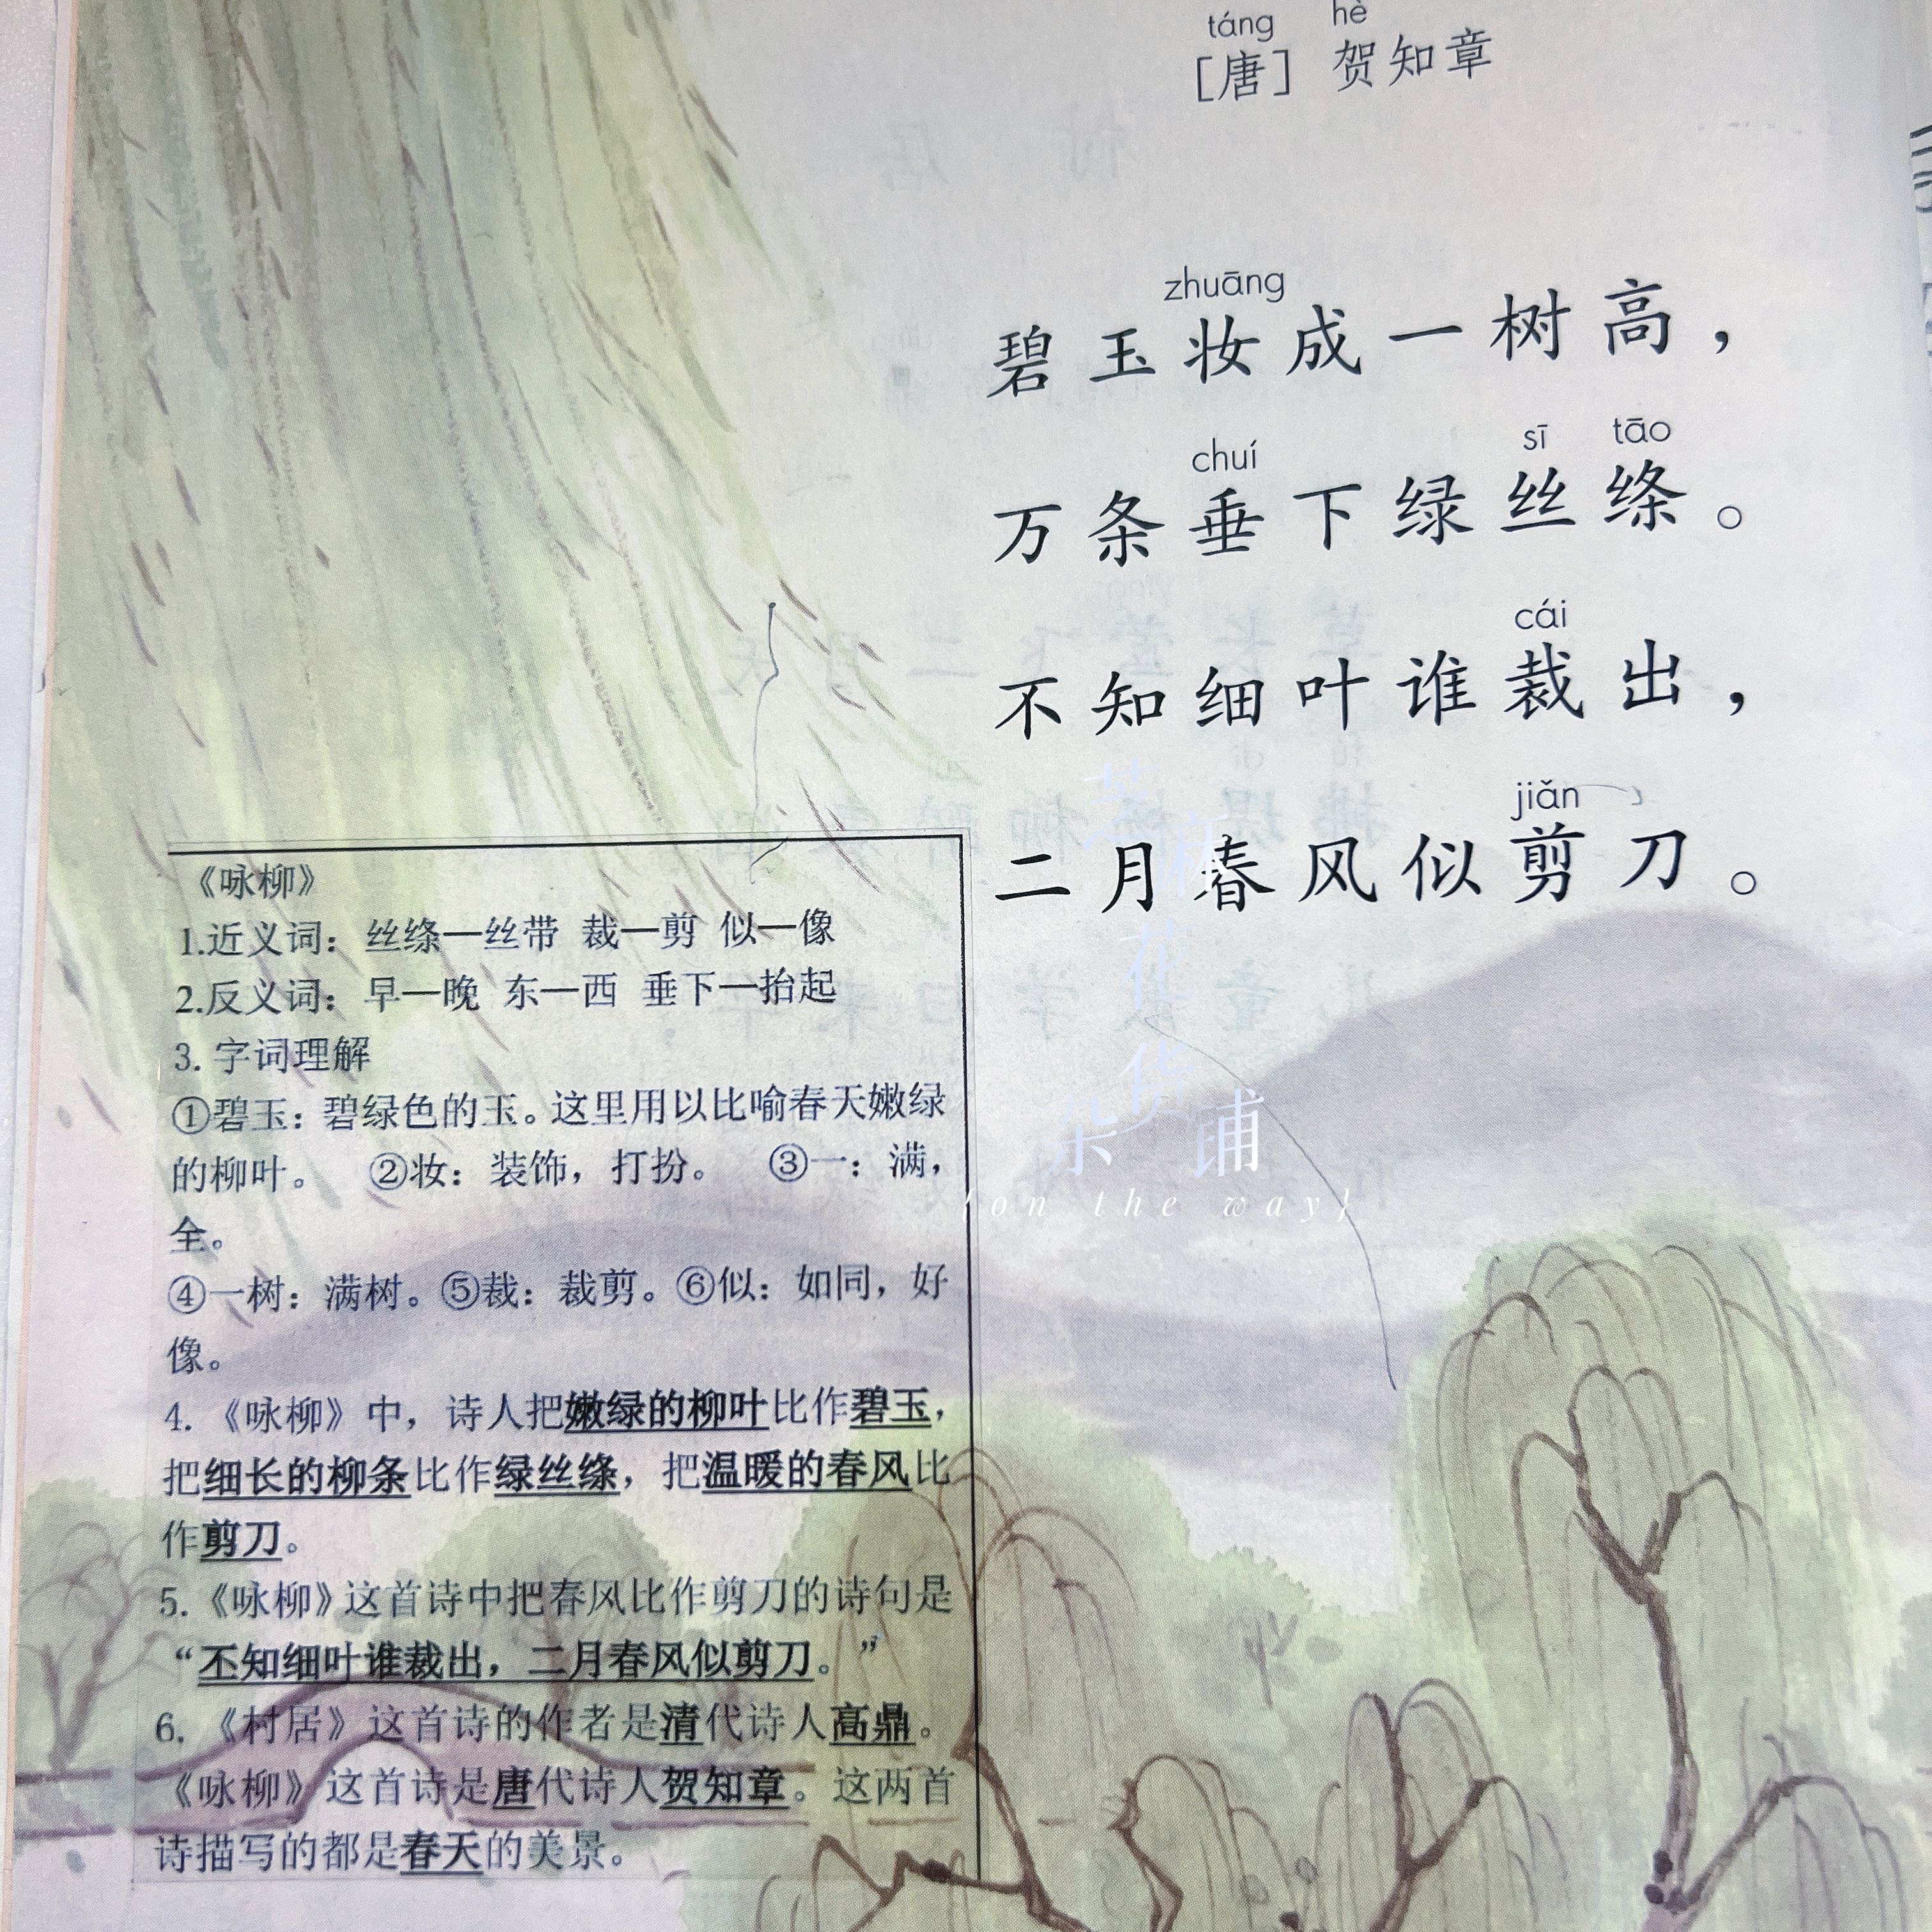 táng hè
[唐] 贺知章
zhuāng
碧玉妆成一树高，
chuí sī tāo
万条垂下绿丝绦。
cái
不知细叶谁裁出，
jiǎn
二月春风似剪刀。
《咏柳》
1.近义词：丝绦—丝带 裁—剪 似—像
2.反义词：早—晚 东—西 垂下—抬起
3. 字词理解
①碧玉：碧绿色的玉。这里用以比喻春天嫩绿
的柳叶。 ②妆：装饰，打扮。 ③一：满，
全。
④一树：满树。⑤裁：裁剪。⑥似：如同，好
像。
4.《咏柳》中，诗人把嫩绿的柳叶比作碧玉，
把细长的柳条比作绿丝绦，把温暖的春风比
作剪刀。
5.《咏柳》这首诗中把春风比作剪刀的诗句是
“不知细叶谁裁出，二月春风似剪刀。”
6.《村居》这首诗的作者是清代诗人高鼎。
《咏柳》这首诗是唐代诗人贺知章。这两首
诗描写的都是春天的美景。
花
货
杂 铺
{on the way}